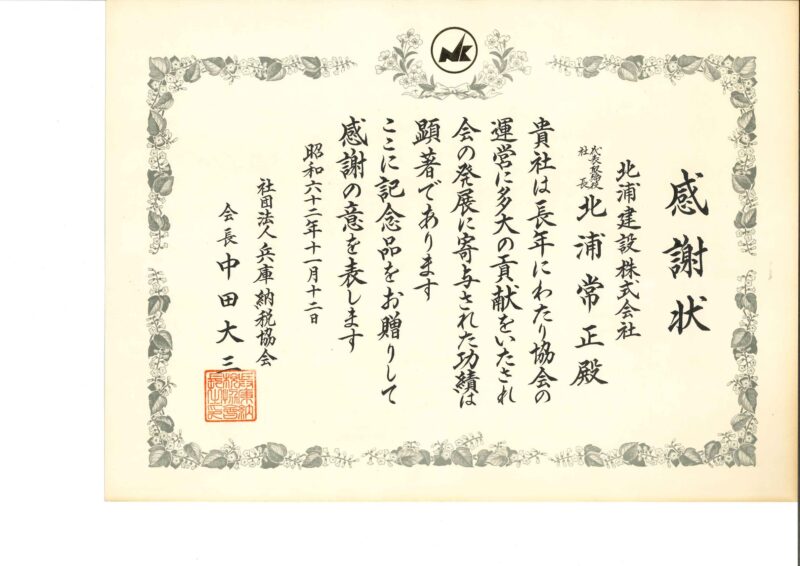 感謝状
北浦建設株式会社
代表取締役
社長
北浦常正殿
貴社は長年にわたり協会の
運営に多大の貢献をいたされ
会の発展に寄与された功績は
顕著であります
ここに記念品をお贈りして
感謝の意を表します
昭和六十二年十一月十二日
社団法人兵庫納税協会
会長中田大三